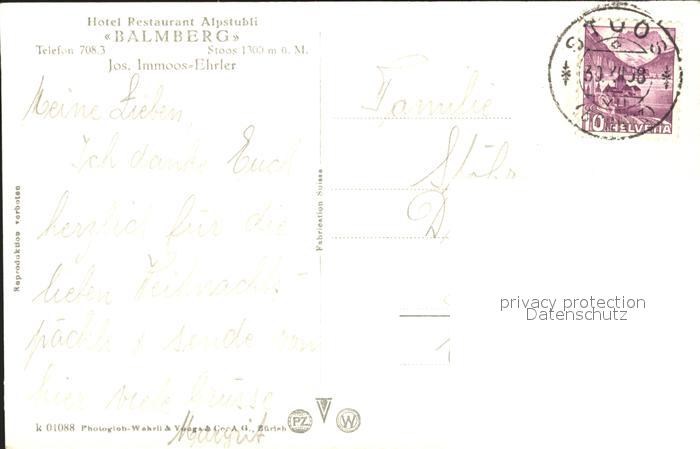 Hotel Restaurant Alpstubli
«BALMBERG»
Telefon 708.3 Stoos 1300 m ü. M.
Jos. Immoos-Ehrler
Meine Lieben,
Ich danke Euch
herzlich für die
lieben Weihnachts-
päckli & sende von
hier viele Grüsse
Margrit
Reproduktion verboten
Fabrication Suisse
Familie
STOOS
10 HELVETIA
privacy protection
Datenschutz
k 01088 Photoglob-Wehrli & Vouga & Co. A. G., Zürich
PZ
W